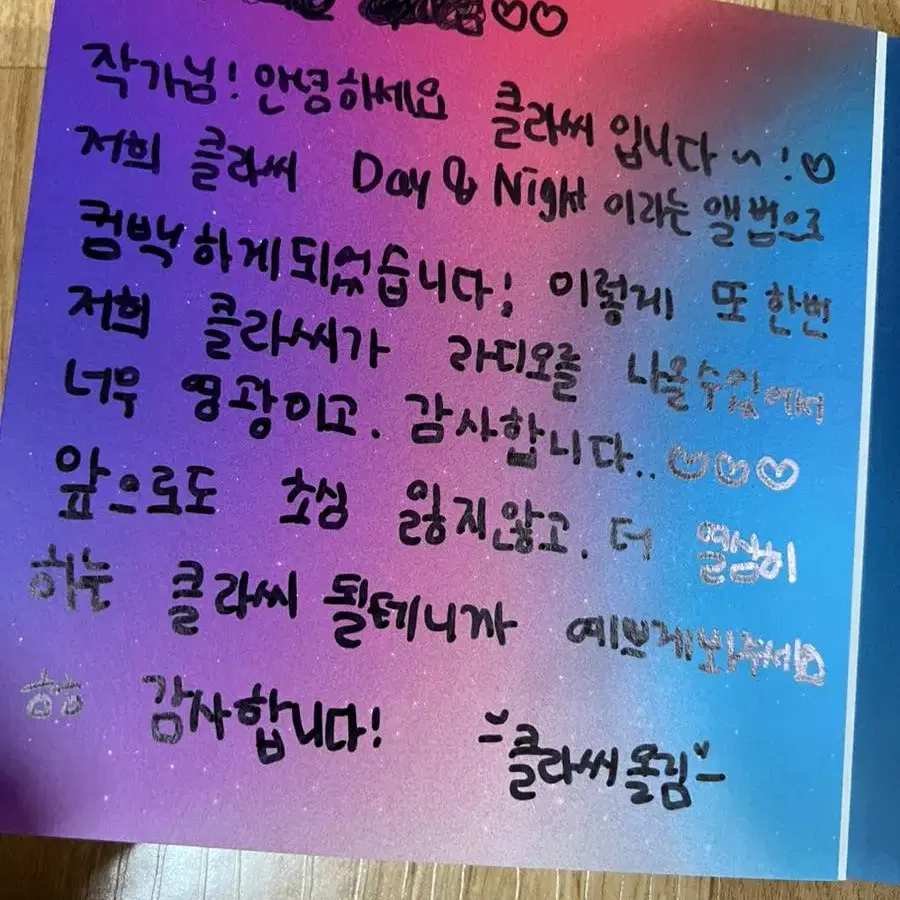 ♡♡
작가님! 안녕하세요 클라씨입니다~!♡
저희 클라씨 Day & Night 이라는 앨범으로
컴백하게되었습니다! 이렇게 또 한번
저희 클라씨가 라디오를 나올수있에서
너무 영광이고. 감사합니다..♡♡♡
앞으로도 초심 잃지않고. 더 열심히
하는 클라씨 될테니까 예쁘게봐주세요
ㅎㅎ 감사합니다!
-클라씨올림-